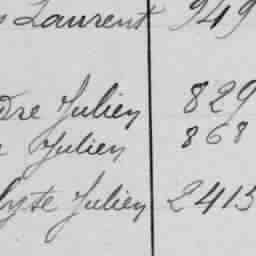 Laurent 949
dre Julien 829
e Julien 868
lyte Julien 2415